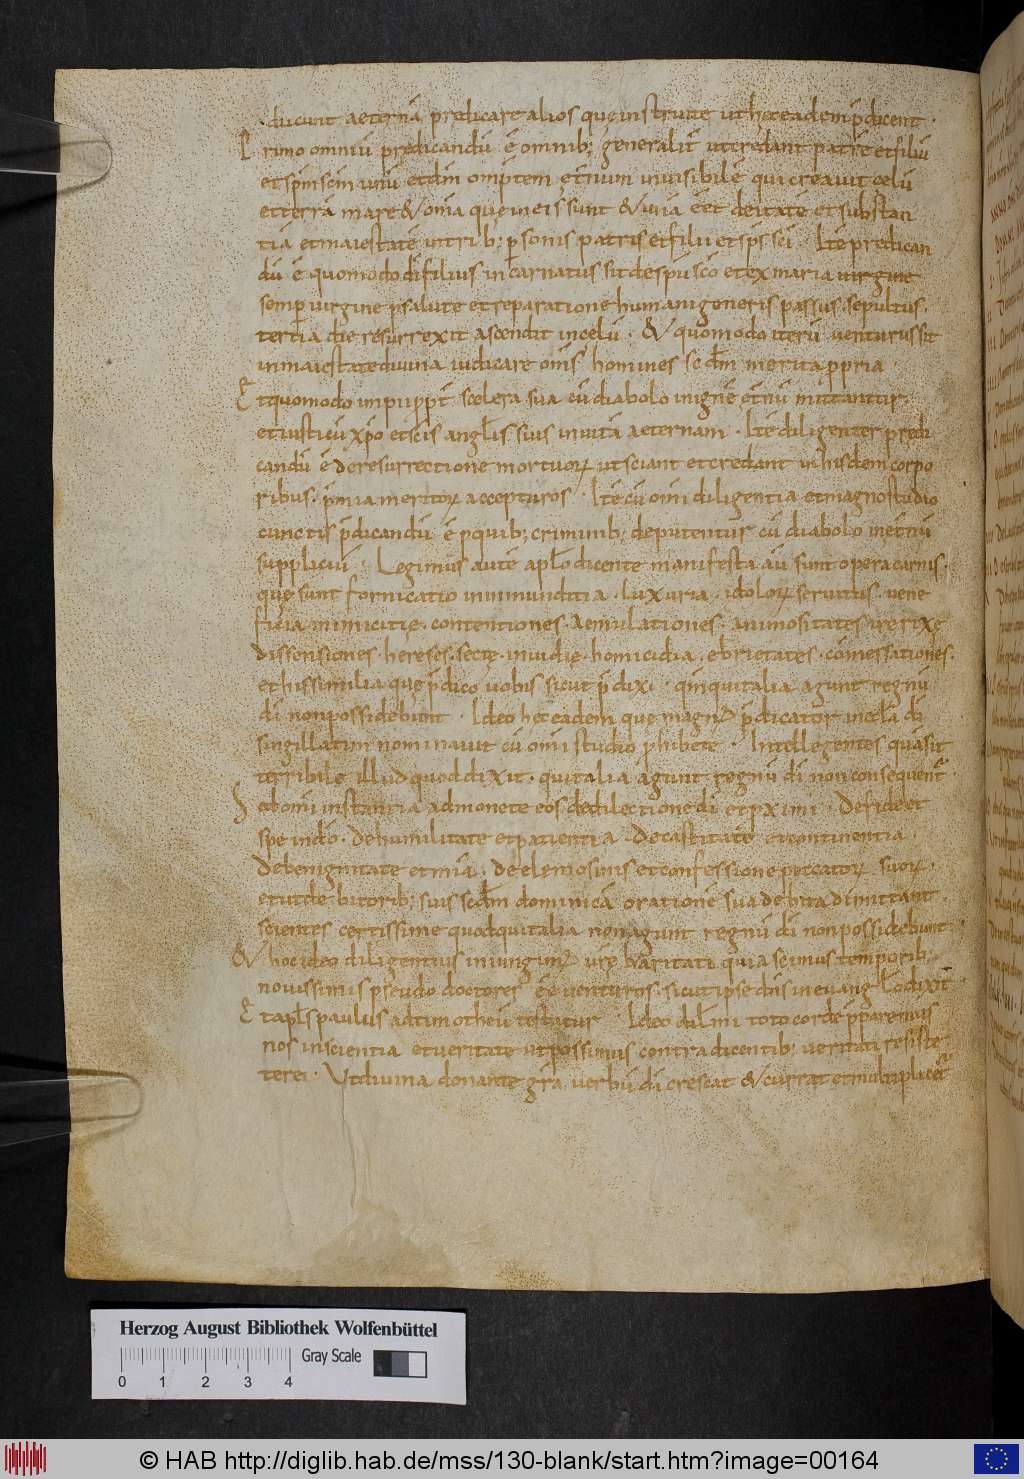 ducunt aeternā predicare alios que instruite ut hęc eadem p̄dicent ·
Primo omniū predicandū ē omnib; generalit̄ ut credant patrē et filiū
et sp̄m sc̄m unū eē dm̄ omp̄tem ęt̄num invisibilē qui creavit celū
et terrā mare & om̄ia que in eis sunt & unā eēt deitatē et substan
tiā et maiestatē in trib; ꝑsonis patris et filii et sp̄s sc̄i · It̄e predican
dū ē quomodo dī filius incarnatus sit de sp̄u sc̄o et ex maria virgine
semꝑ virgine ꝑ salute et reparatione humani generis passus · sepultus ·
tertia die resurrexit ascendit in celū · & quomodo iterū venturus sit
in maiestate divina iudicare om̄is homines sec̄dm merita ꝓpria ·
Et quomodo impii ꝓpt̄ scelera sua cū diabolo in ignē ęt̄nū mittantur ·
et iusti cū xp̄o et sc̄is angl̄is suis in vitā aeternam · It̄e diligenter predi
candū ē de resurrectione mortuoꝝ ut sciant et credant in hisdem corpo
ribus · p̄mia meritoꝝ accepturos · It̄e cū om̄i diligentia et magno studio
cunctis p̄dicandū ē ꝓ quib; criminib; deputentur cū diabolo in ęt̄nū
suppliciū · Legimus autē apl̄o dicente manifesta aū sunt opera carnis ·
quę sunt fornicatio inmunditia · luxuria · idoloꝝ servitus · vene
ficia inimicitie · contentiones · aemulationes · animositates ire rixę
dissensiones · hereses · sectę · invidię · homicidia · ebrietates · comessationes ·
et his similia quę p̄dico vobis sicut p̄dixi · qm̄ qui talia agunt regnū
dī non possidebunt · Ideo hęc eadem que magn p̄dicator in ecl̄a dī
singillatim nominavit cū om̄i studio ꝓhibete · Intellegentes quā sit
terribile illud quod dixit · qui talia agunt regnū dī non consequent̄ ·
Sed om̄i instantia admonete eos de dilectione dī et ꝓximi · De fide et
spe in dō · De humilitate et patientia De castitate et continentia
De benignitate et mīa · de elemosinis et confessione peccatoꝝ suoꝝ ·
et ut debitorib; suis sec̄dm dominicā orationē sua debita dimittant ·
scientes certissime quod qui talia non agunt regnū dī non possidebunt
& hoc ideo diligentius iniungim vr̄ę karitati quia scimus temporib;
novissimis pseudo doctores eē venturos · sicut ipse dn̄s in evangl̄o dixit ·
Et apl̄s paulus ad timotheū testatur Ideo dil̄mi toto corde p̄paremus
nos in scientia et veritate ut possimus contradicentib; veritati resiste
terei · Ut divina donante gr̄a verbū dī crescat & currat et multiplicet̄
Herzog August Bibliothek Wolfenbüttel
Gray Scale
0 1 2 3 4
© HAB http://diglib.hab.de/mss/130-blank/start.htm?image=00164